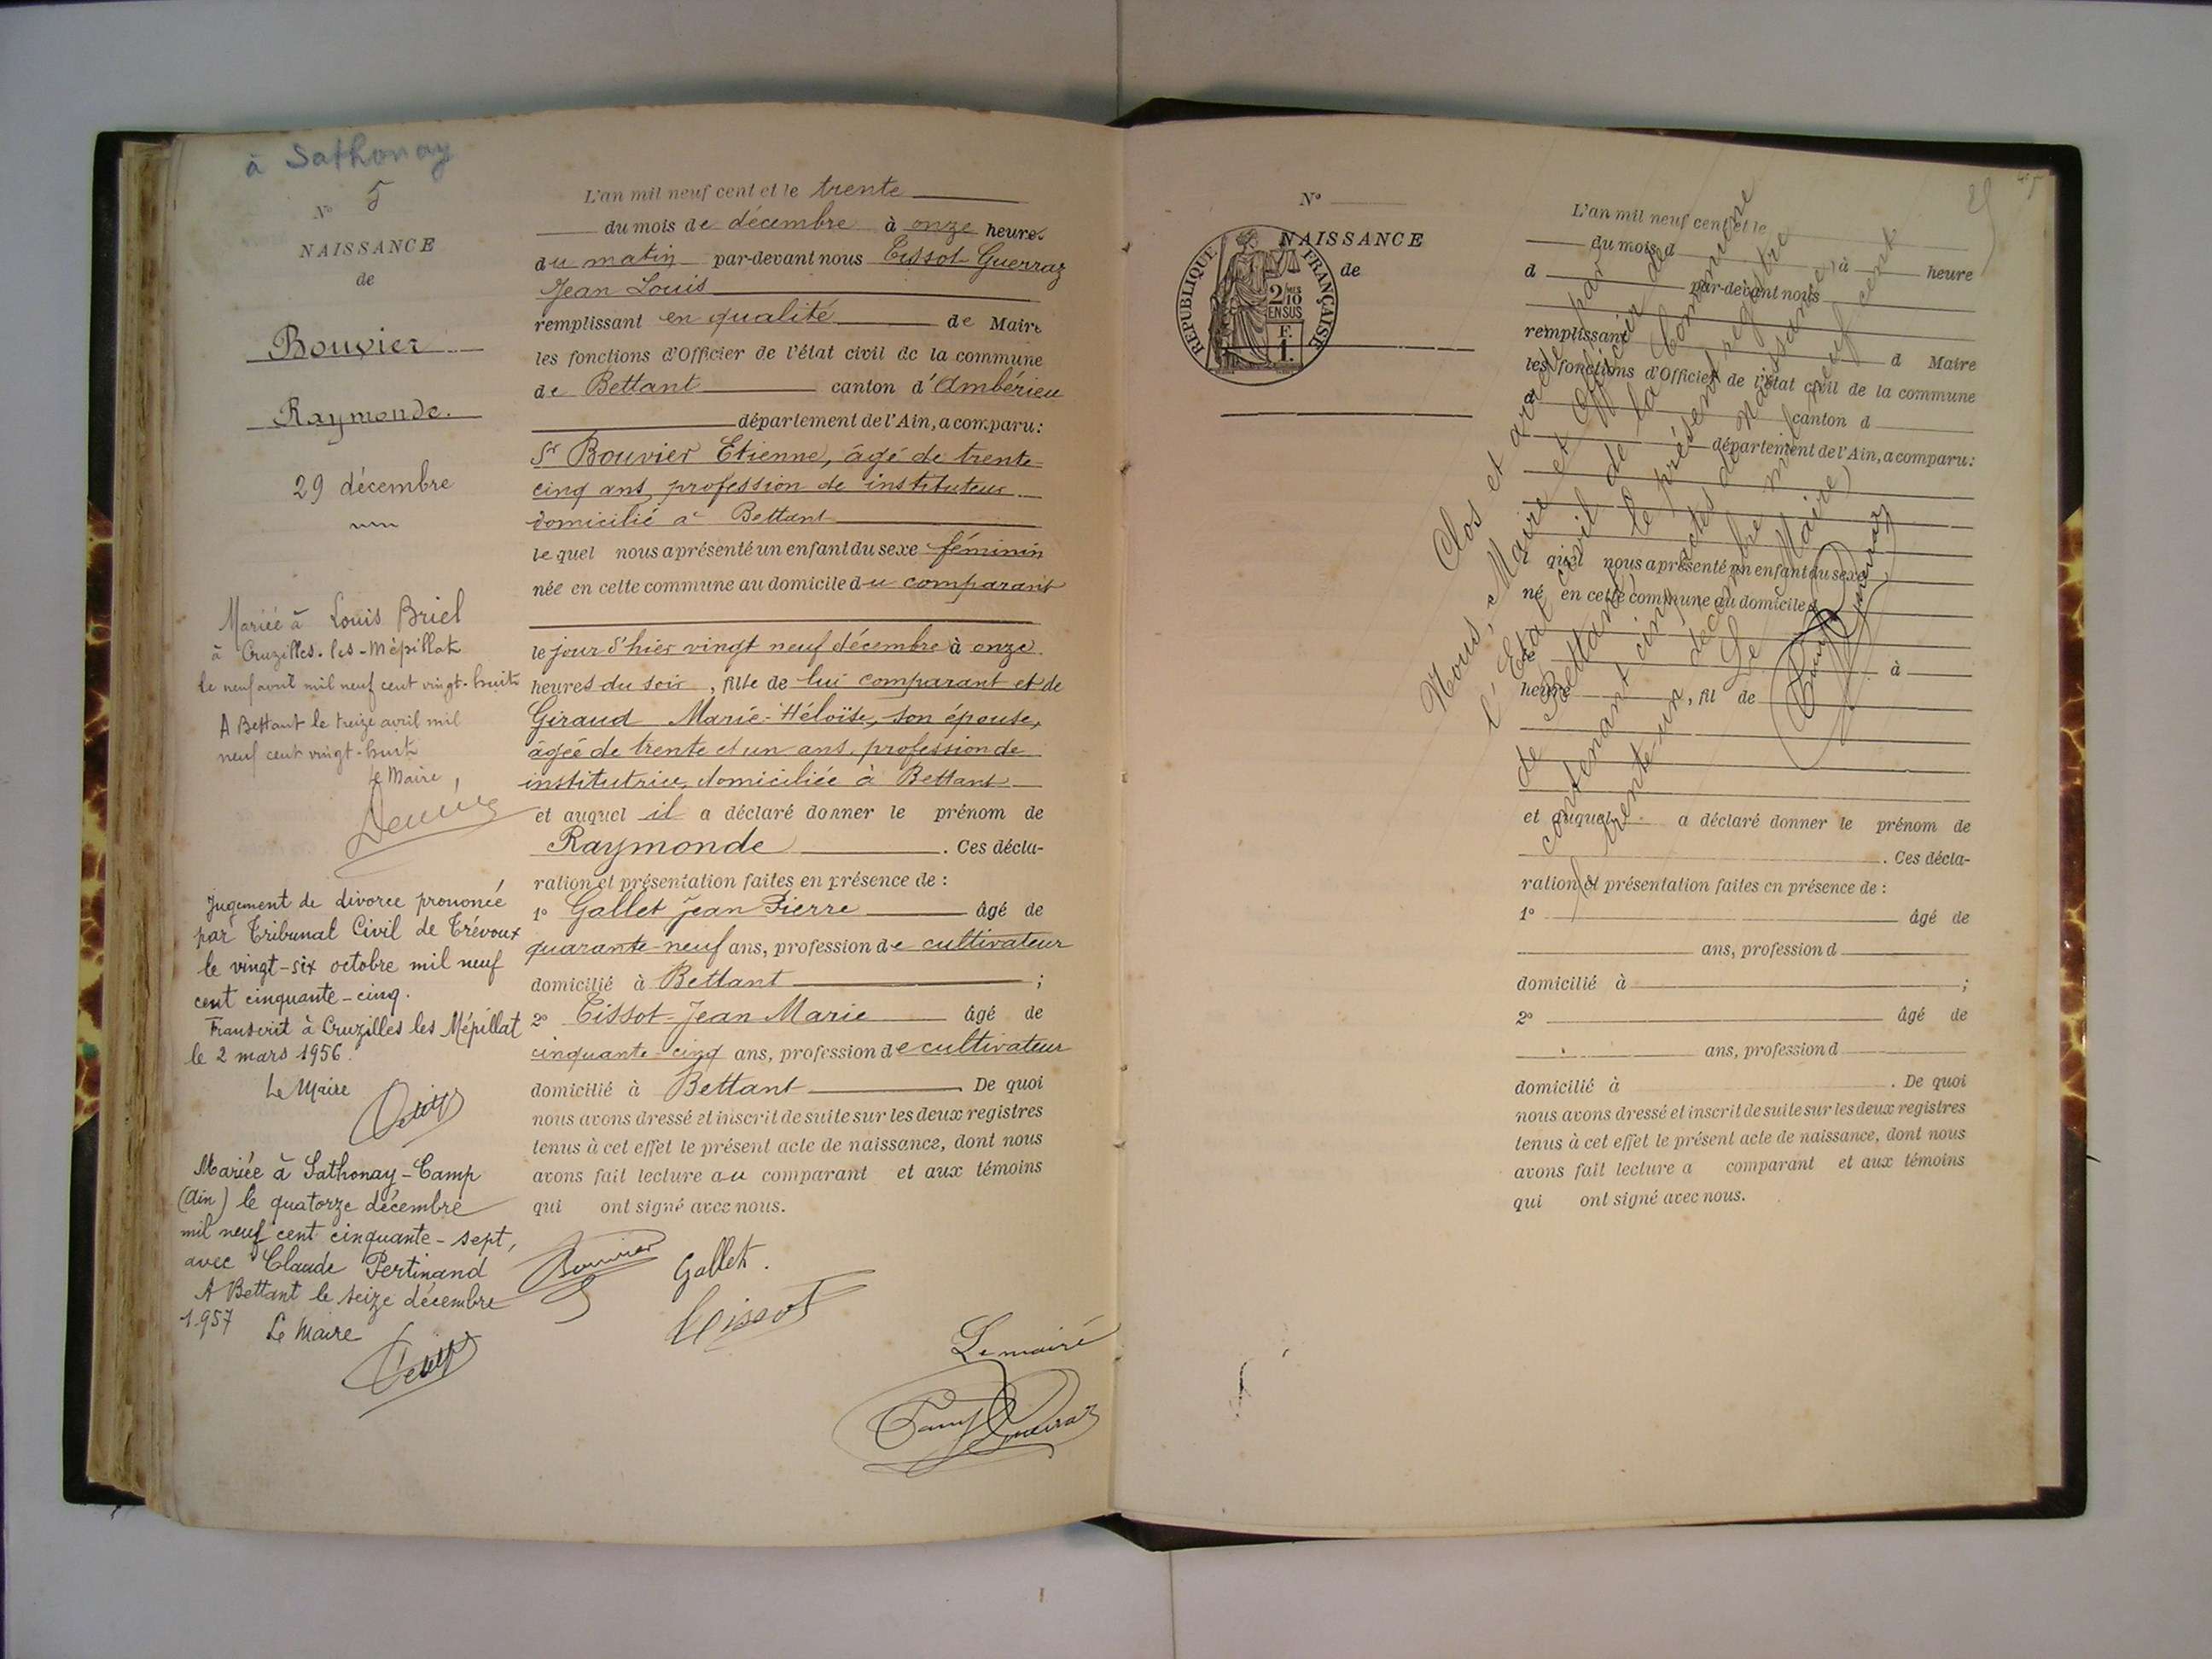 à Sathonay
N° 5
NAISSANCE
de
Bouvier
Raymonde.
29 décembre
Mariée à Louis Briel
à Cruzilles-les-Mépillat
le neuf avril mil neuf cent vingt-huit
A Bettant le treize avril mil
neuf cent vingt-huit
Le Maire,
Jugement de divorce prononcé
par Tribunal Civil de Trévoux
le vingt-six octobre mil neuf
cent cinquante-cinq.
Transcrit à Cruzilles les Mépillat
le 2 mars 1956.
Le Maire
Mariée à Sathonay-Camp
(Ain) le quatorze décembre
mil neuf cent cinquante-sept,
avec Claude Pertinand
A Bettant le seize décembre
1957 Le Maire
L'an mil neuf cent et le trente
du mois de décembre à onze heures
du matin par-devant nous Tissot Guerraz
Jean Louis
remplissant en qualité de Maire
les fonctions d'Officier de l'état civil de la commune
de Bettant canton d'Ambérieu
département de l'Ain, a comparu:
Sr Bouvier Etienne, âgé de trente-
cinq ans, profession de instituteur
domicilié à Bettant
le quel nous a présenté un enfant du sexe féminin
née en cette commune au domicile du comparant
le jour d'hier vingt neuf décembre à onze
heures du soir, fille de lui comparant et de
Giraud Marie-Héloïse, son épouse,
âgée de trente et un ans, profession de
institutrice, domiciliée à Bettant
et auquel il a déclaré donner le prénom de
Raymonde . Ces décla-
ration et présentation faites en présence de :
1° Gallet Jean Pierre âgé de
quarante-neuf ans, profession de cultivateur
domicilié à Bettant ;
2° Tissot-Jean Marie âgé de
cinquante-cinq ans, profession de cultivateur
domicilié à Bettant . De quoi
nous avons dressé et inscrit de suite sur les deux registres
tenus à cet effet le présent acte de naissance, dont nous
avons fait lecture au comparant et aux témoins
qui ont signé avec nous.
Bouvier Gallet.
Tissot
Le maire
N°
NAISSANCE
de
REPUBLIQUE FRANÇAISE
2/10 EN SUS
F. 1.
L'an mil neuf cent et le
du mois d à heure
d par-devant nous
remplissant d Maire
les fonctions d'Officier de l'état civil de la commune
d canton d
département de l'Ain, a comparu:
quel nous a présenté un enfant du sexe
né en cette commune au domicile d
le à
heure , fil de
et auquel a déclaré donner le prénom de
. Ces décla-
ration et présentation faites en présence de :
1° âgé de
ans, profession d
domicilié à ;
2° âgé de
ans, profession d
domicilié à . De quoi
nous avons dressé et inscrit de suite sur les deux registres
tenus à cet effet le présent acte de naissance, dont nous
avons fait lecture a comparant et aux témoins
qui ont signé avec nous.
Clos et arrêté par
Nous, Maire et Officier de
l'Etat civil de la Commune
de Bettant le présent registre
contenant cinq actes de naissance,
trente-un décembre mil neuf cent
Le Maire)